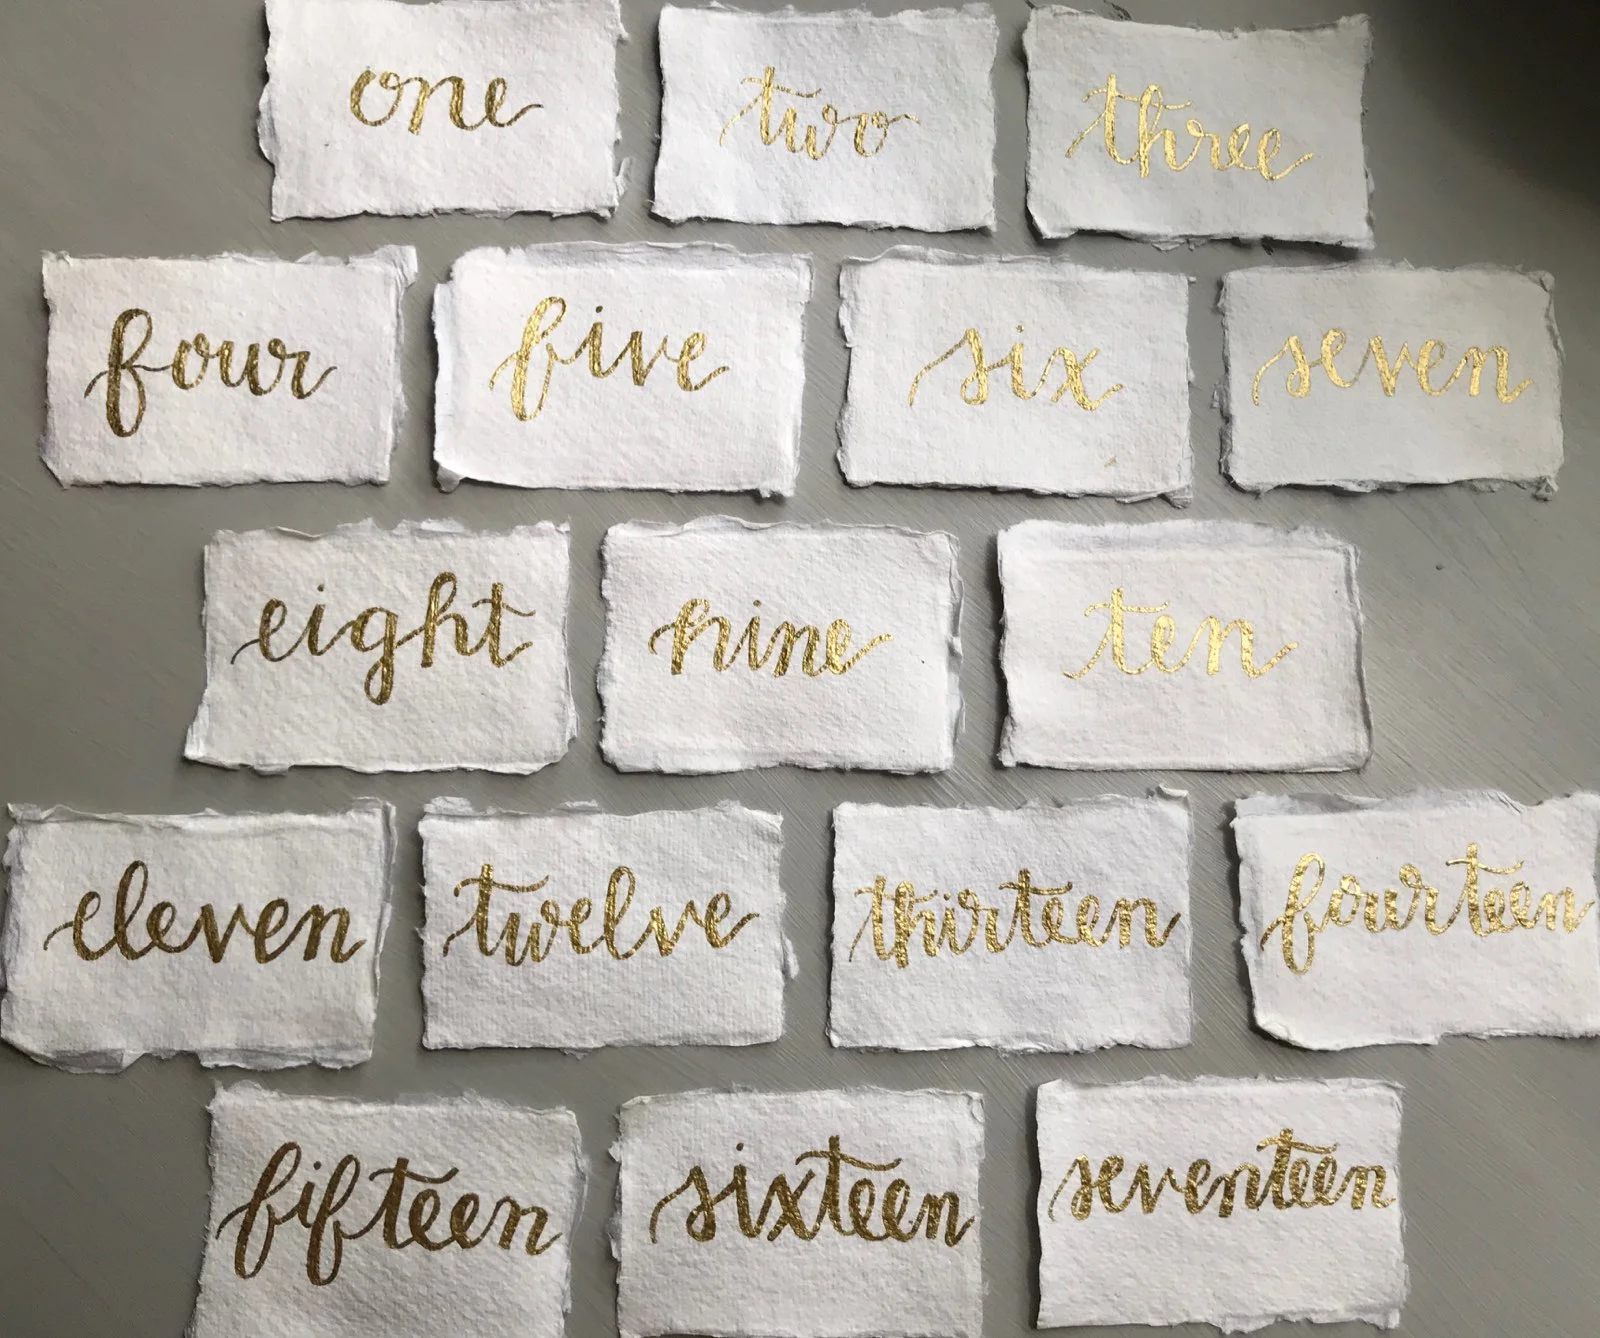 one two three
four five six seven
eight nine ten
eleven twelve thirteen fourteen
fifteen sixteen seventeen